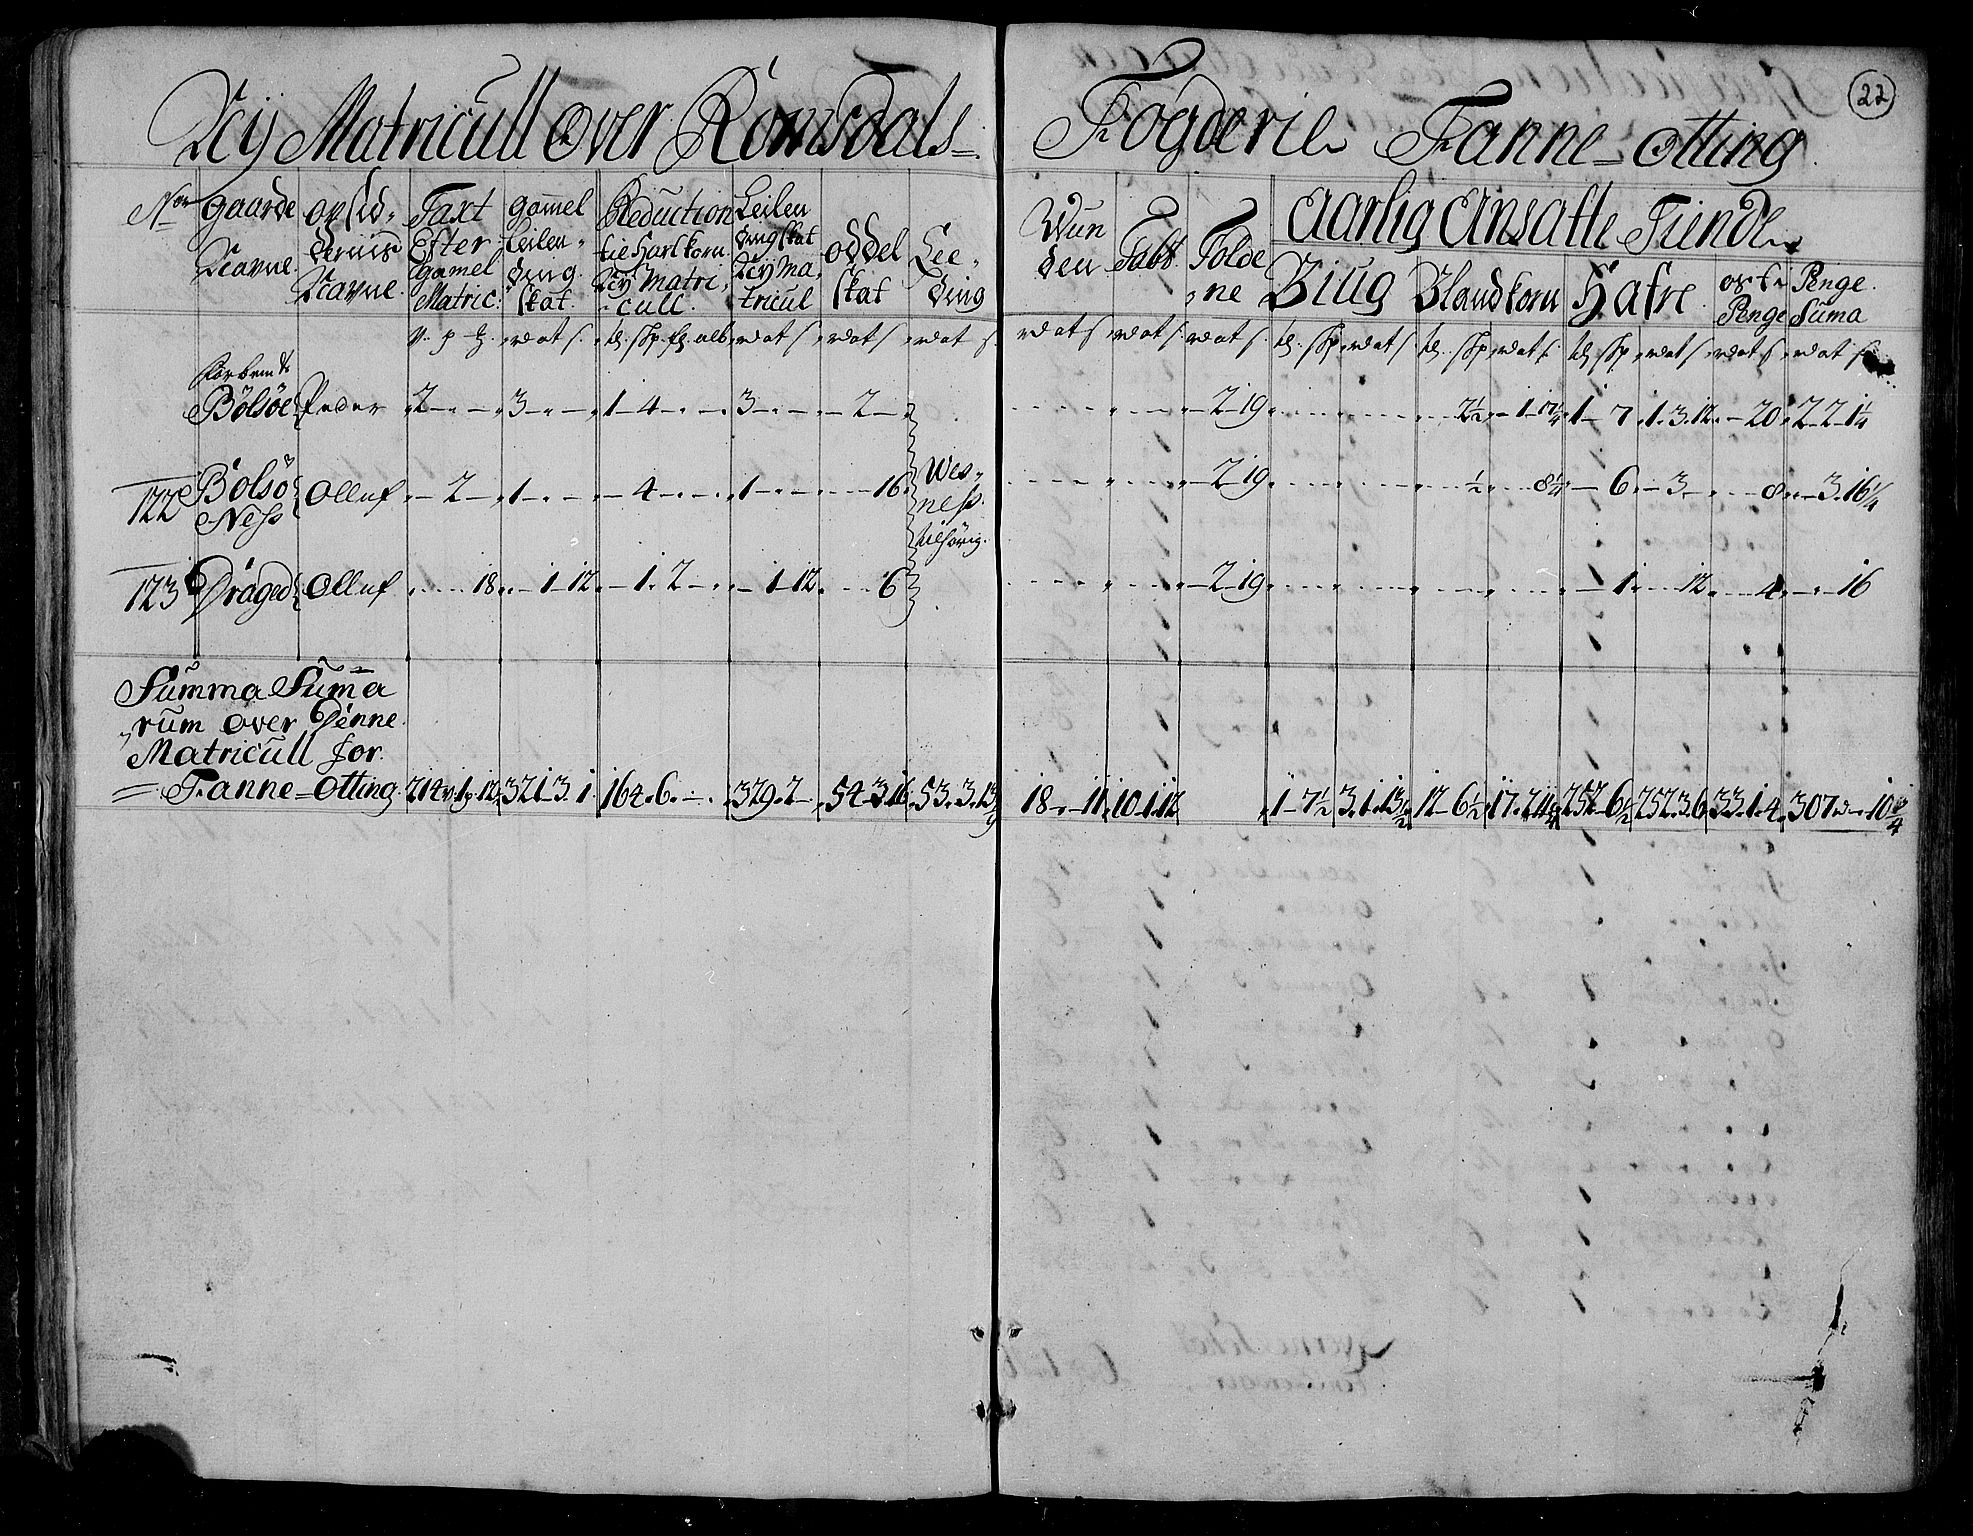 Nÿ Matricull over Romsdals=
Fogderie Fanne-otting
22
No
gaarde Navne.
opsid- dernis Navne.
Taxt Efter gamel Matric:
gamel Leilen- ding skat
Reduction til Hartkorn Nÿ Matri- cull.
Leilen ding skat Nÿ Ma- tricul
oddel skat
Lee- ding
Wun den
Tabt.
Folde ne
Aarlig Ansatte Tiende
Biug
Blandkorn
Hafre
oste Penge
Penge Suma
Forbemte
Bolsöe Peder 2 - - 3 - - 1-4- - - 3 - - - 2 -
- 2-19 2½ - 1-17¼ 1- 7 1.3.12 - 20 2-2-1¼
122 Bolsö Ness Olluf - 2 - 1 - - - 4 - - 1 - - - - 16
Wes- ness. tilhörig.
- 2-19 ½ 8¼ - 6 - 3 - - - 8 - 3.16¼
123 Dráged Olluf - - 18 - 1-12 - 1. 2 - - 1-12 - - 6
- 2-19 - 1 - - 12 - - 4 - - 16
Summa Suma
rum over Denne
Matricull for
Fanne-otting. 214v.1p.12 321-3.1 164.6. - 329.2- 54-3.16 53.3.13
18. -11 10.1.12 1-7½ 3.1.13½ 12-6½ 17.2. 257-6½ 252.3.6 33.1.4 307 - -10